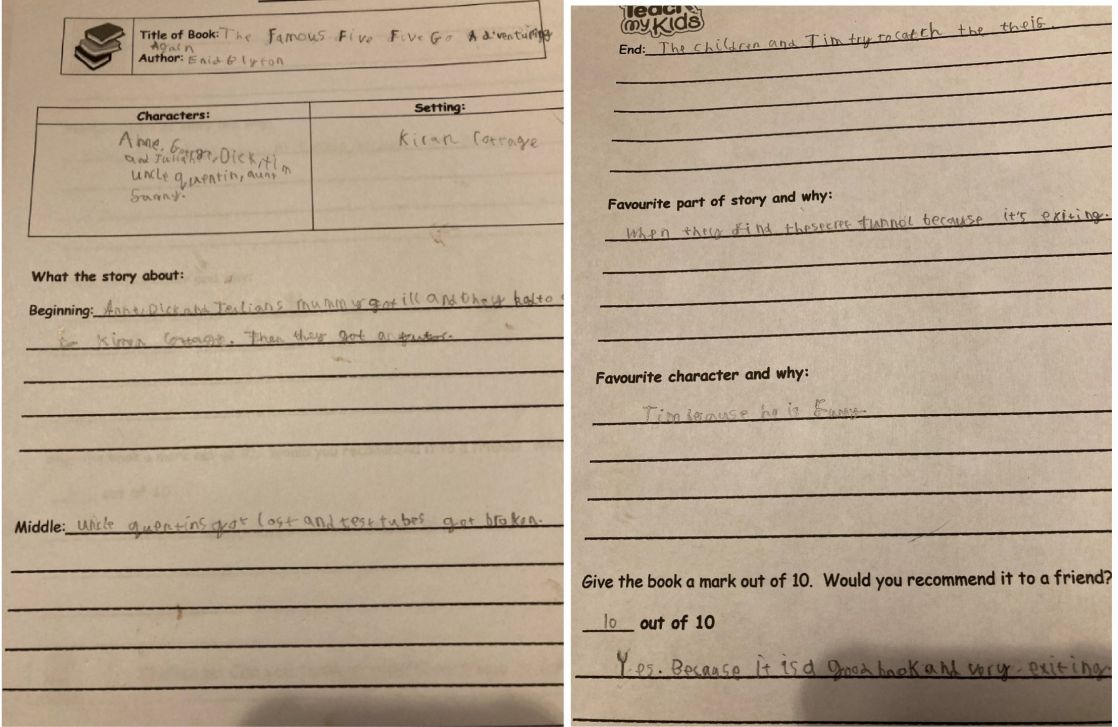 Title of Book: The Famous Five Five Go Adventuring
Again
Author: Enid Blyton
Characters:
Setting:
Anne, George,
and Julian, Dick, Tim
uncle quentin, aunt
Fanny.
Kiran Cottage
What the story about:
Beginning: Anne, Dick and Julians mummy got ill and they had to
to Kirren Cottage. Then they got a tutor.
Middle: Uncle quentins got lost and test tubes got broken.
Teach
my Kids
End: The children and Tim try to catch the theis.
Favourite part of story and why:
When they find the secret tunnol because it's exiting.
Favourite character and why:
Tim because he is Funny
Give the book a mark out of 10. Would you recommend it to a friend?
10 out of 10
Yes. Because it is a good book and very exiting